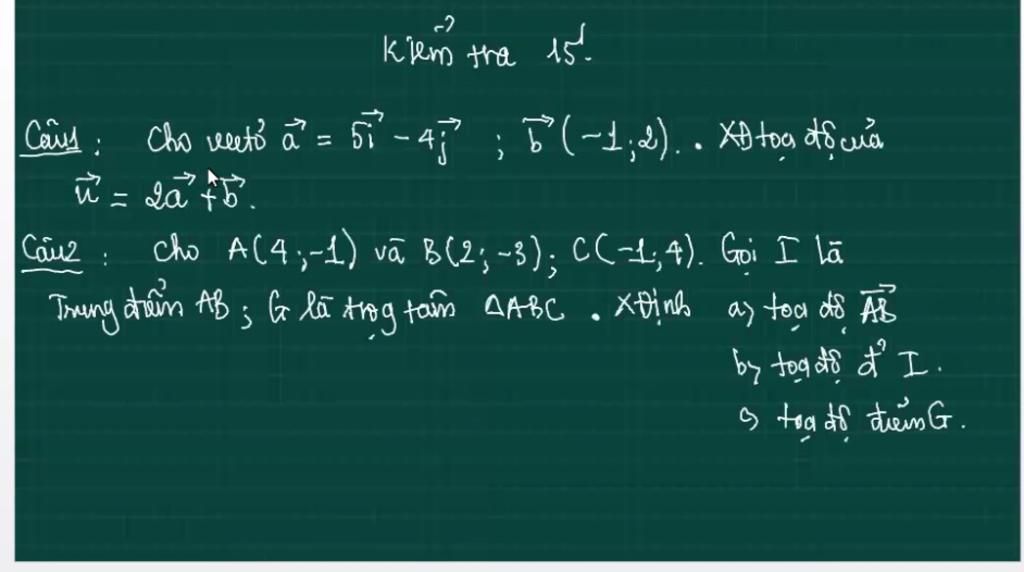 Kiểm tra 15'.
Câu1 : Cho vectơ a⃗ = 5i⃗ - 4j⃗ ; b⃗ (-1;2). . XĐ toạ độ của
u⃗ = 2a⃗ + b⃗.
Câu2 : Cho A(4;-1) và B(2;-3); C(-1;4). Gọi I là
Trung điểm AB; G là trọg tâm ΔABC . XĐịnh a) toạ độ AB⃗
b) toạ độ đ̉ I.
c) toạ độ điểm G.